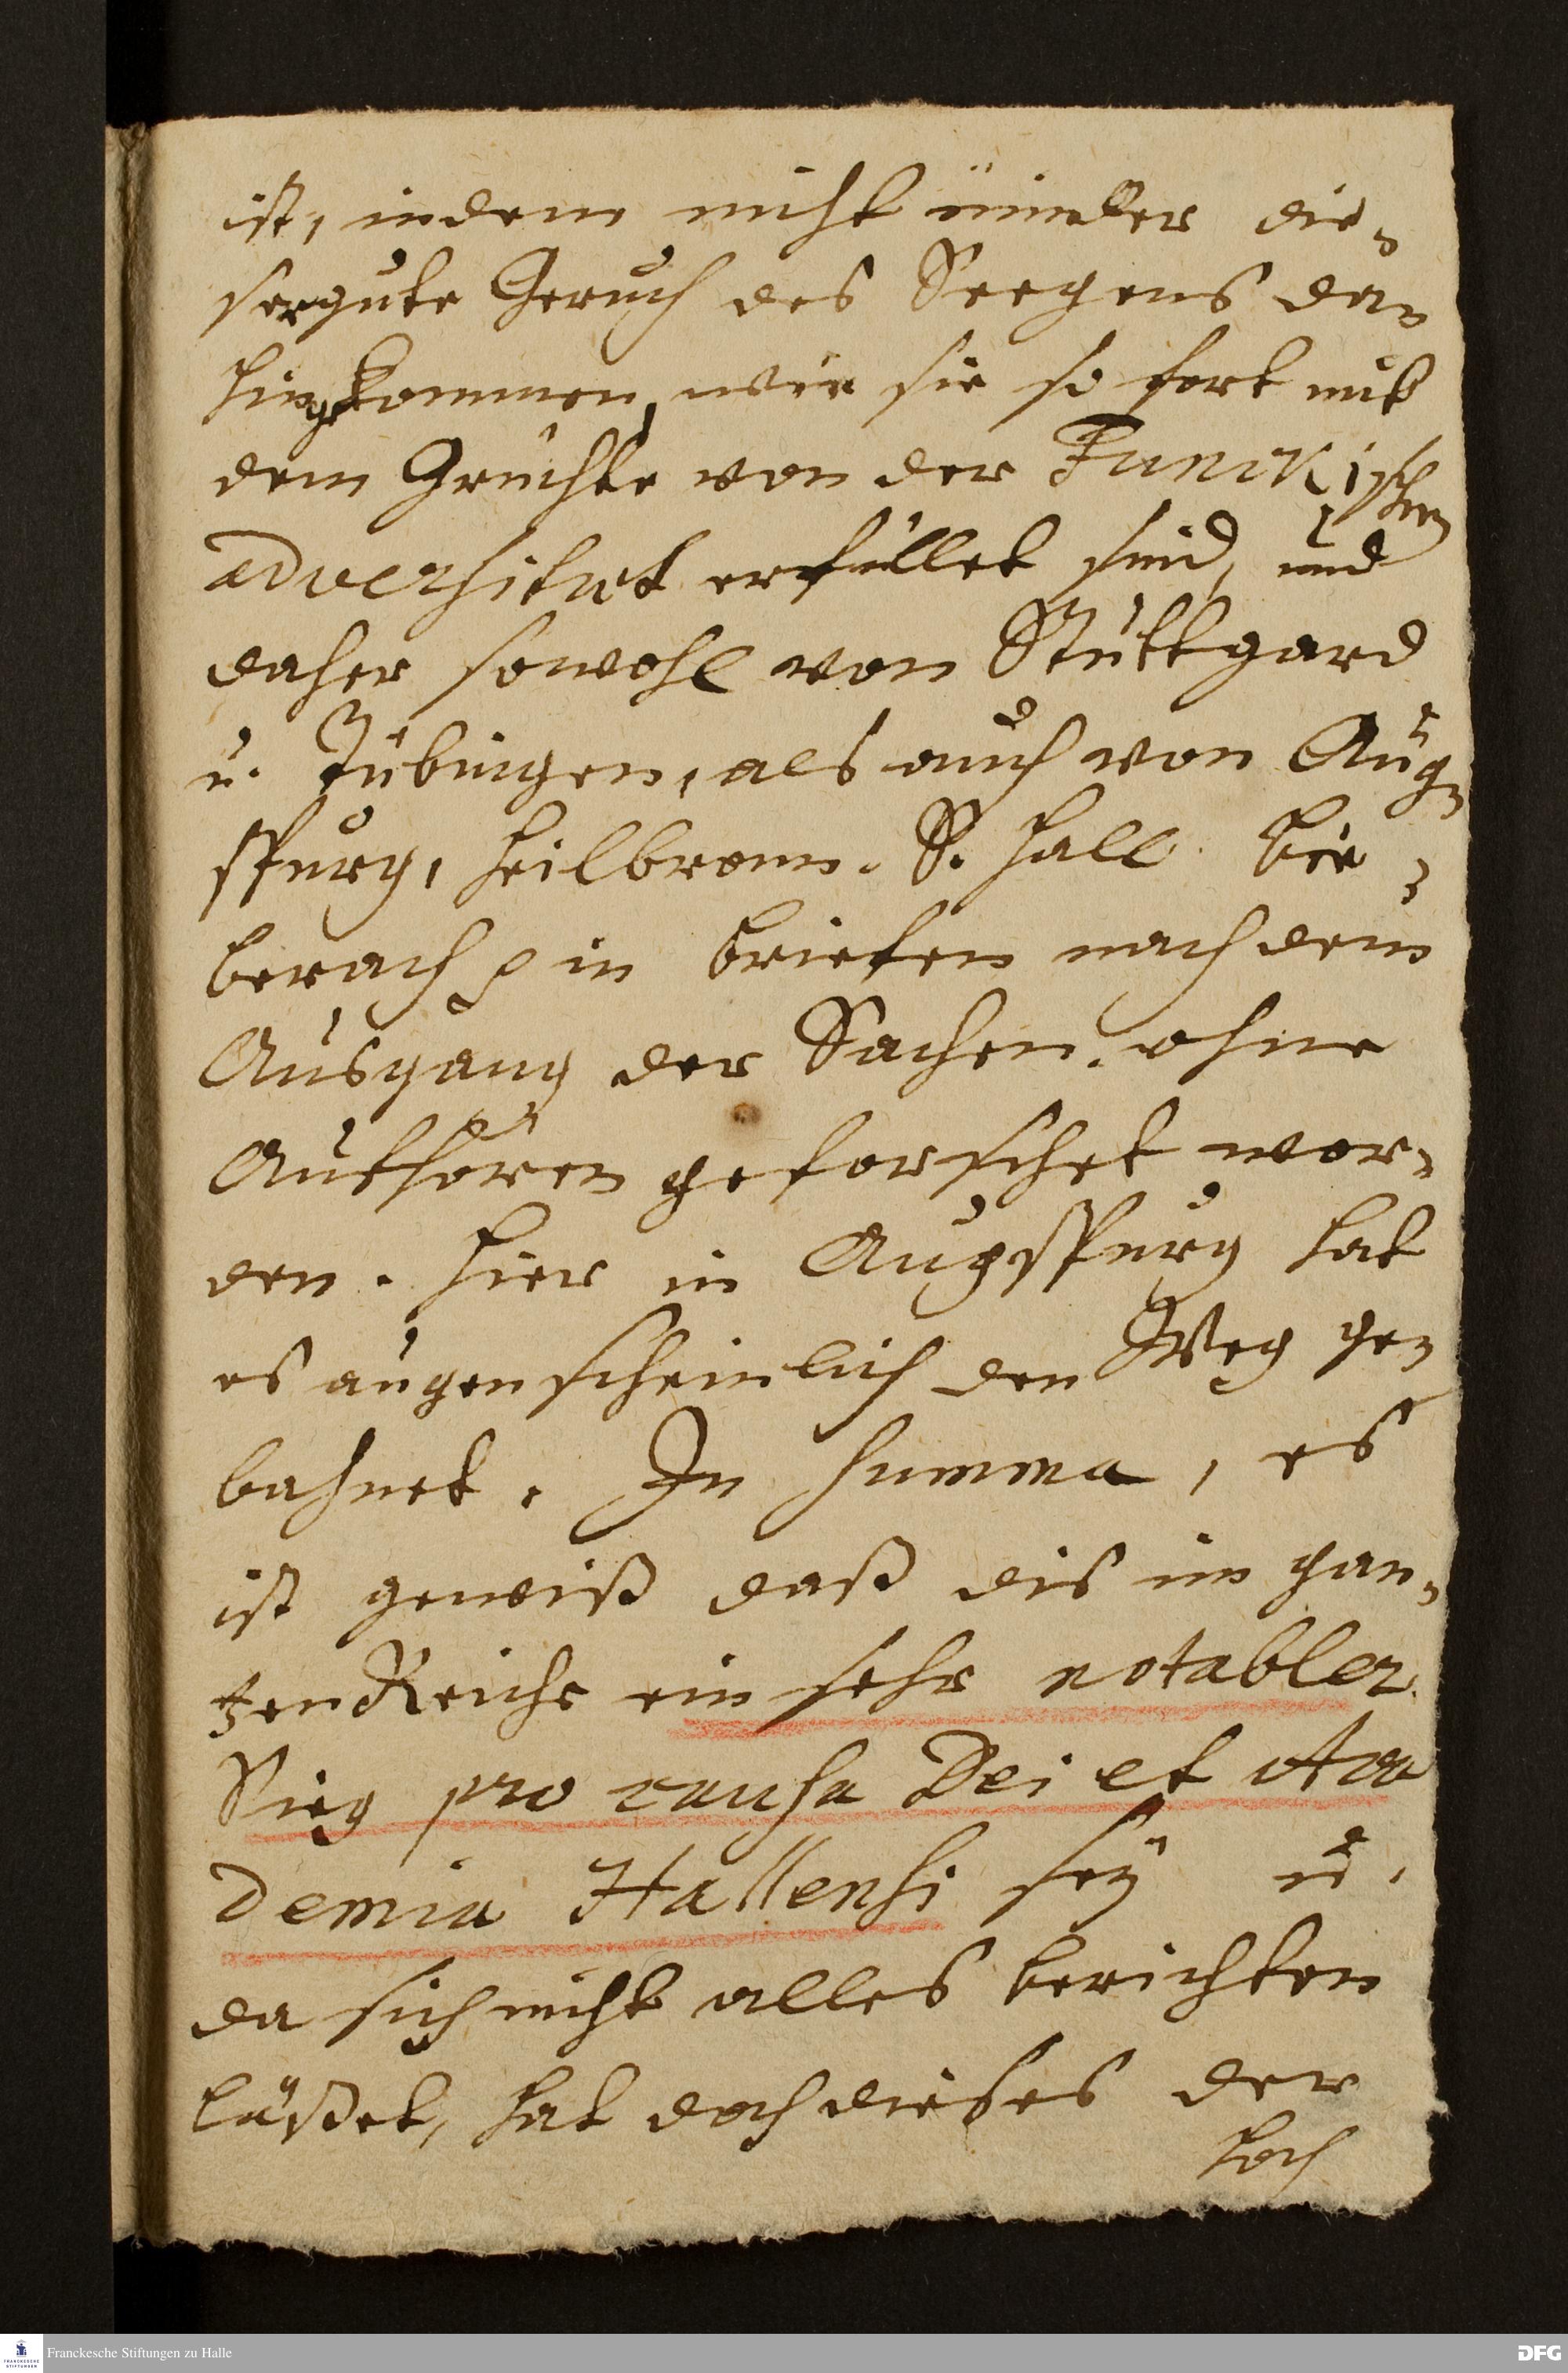 ist, indem nicht minder die-
ser gute Geruch des Seegens da-
hingekommen, wie sie so fort mit
dem Gerüchte von der Funckischen
adversitæt erfüllet sind, und
daher sowohl von Stuttgard
u. Tübingen, als auch von Aug-
spurg, Heilbronn. S. Hall. Bie-
berach in briefen nach dem
Ausgang der Sachen. ohne
Authoren geforschet wor-
den. Hier in Augspurg hat
es augenscheinlich den Weg ge-
bahnet. In summa, es
ist gewiß daß dis im gan-
tzen Reiche ein sehr notabler
Sieg pro causa Dei et Aca
demia Hallensi sey u.
da sich nicht alles berichten
läßet, hat doch dieses der
hoch
Franckesche Stiftungen zu Halle
FRANCKESCHE STIFTUNGEN
DFG